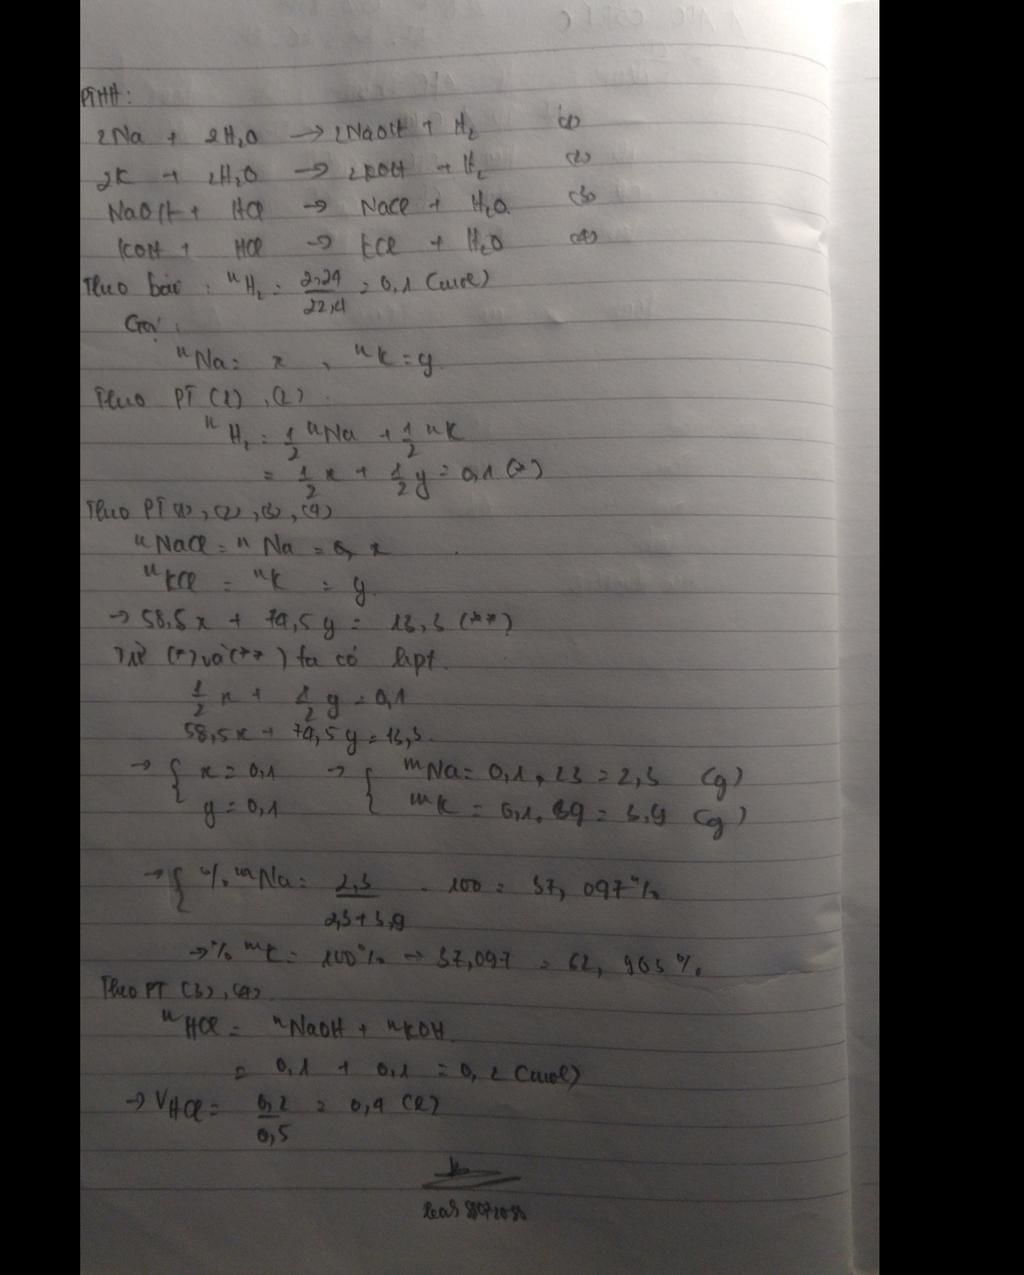 PTHH:
2Na + 2H₂O → 2NaOH + H₂ (1)
2K + 2H₂O → 2KOH + H₂ (2)
NaOH + HCl → NaCl + H₂O (3)
KOH + HCl → KCl + H₂O (4)
Theo bài : nH₂ = 2,24/22,4 = 0,1 (mol)
Gọi :
nNa = x , nK = y
Theo PT (1) , (2) .
nH₂ = 1/2 nNa + 1/2 nK
= 1/2 x + 1/2 y = 0,1 (*)
Theo PT (1) , (2) , (3) , (4)
nNaCl = nNa = x
nKCl = nK = y
→ 58,5x + 74,5y = 13,3 (**)
Từ (*) và (**) ta có hpt
1/2 x + 1/2 y = 0,1
58,5x + 74,5y = 13,3
→ { x = 0,1 → { mNa = 0,1 . 23 = 2,3 (g)
y = 0,1 mK = 0,1 . 39 = 3,9 (g)
→ { % mNa = 2,3/(2,3 + 3,9) . 100 = 37,097 %
→ % mK = 100% - 37,097 = 62,903 %
Theo PT (3) , (4)
nHCl = nNaOH + nKOH
= 0,1 + 0,1 = 0,2 (mol)
→ VHCl = 0,2/0,5 = 0,4 (l)